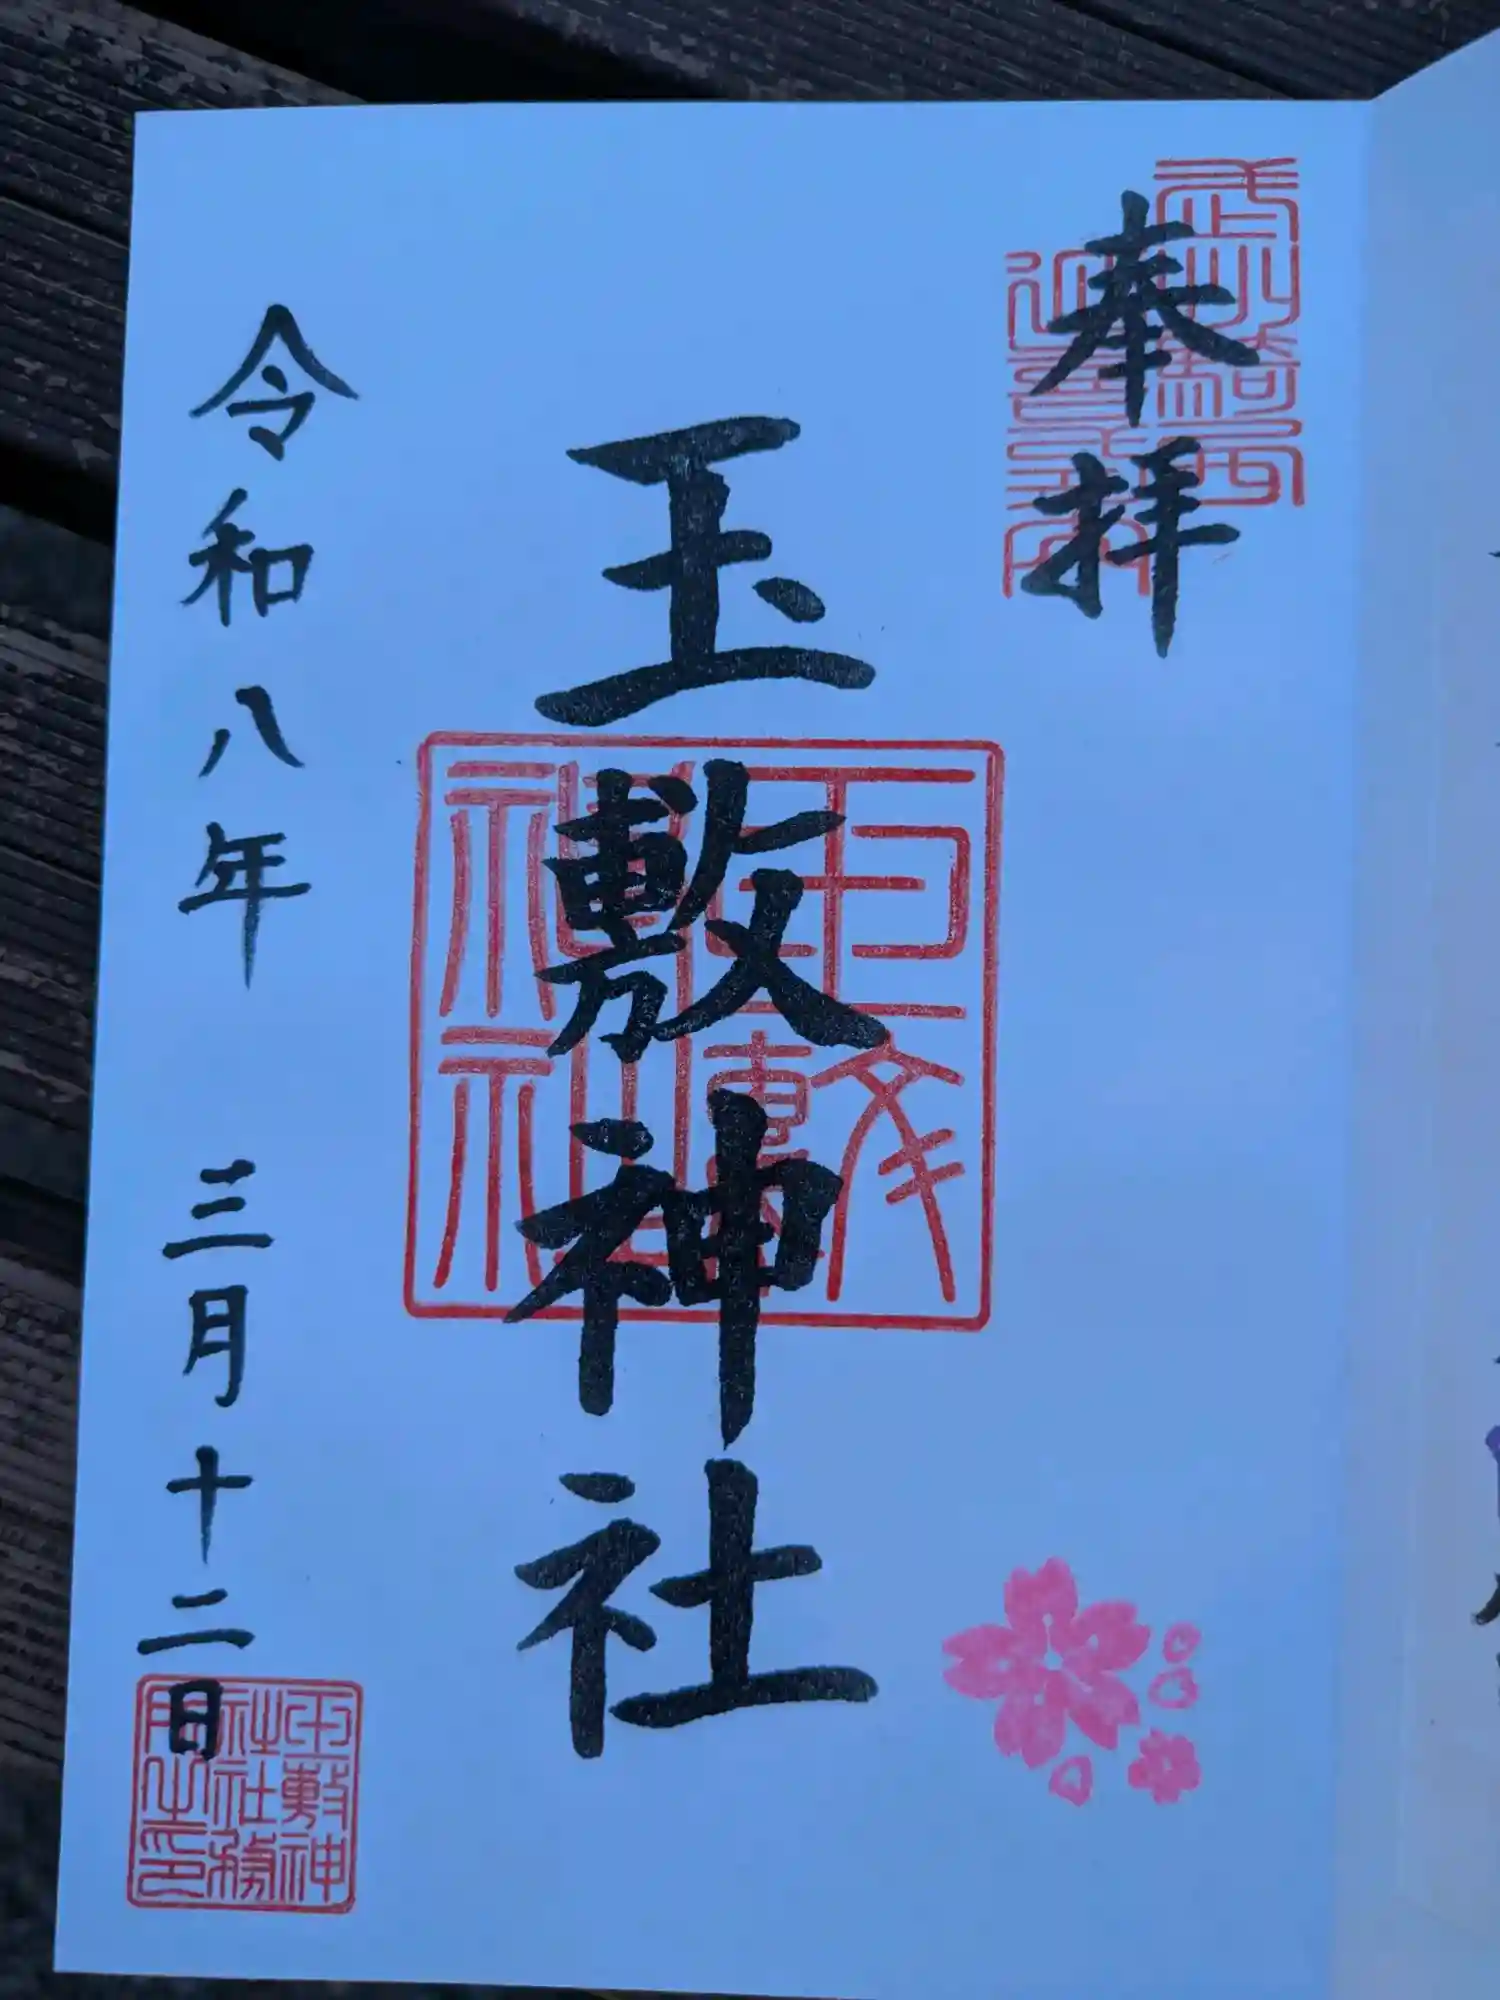 奉拝
玉敷神社
令和八年 三月十二日
玉敷神社
玉敷神社社務所之印